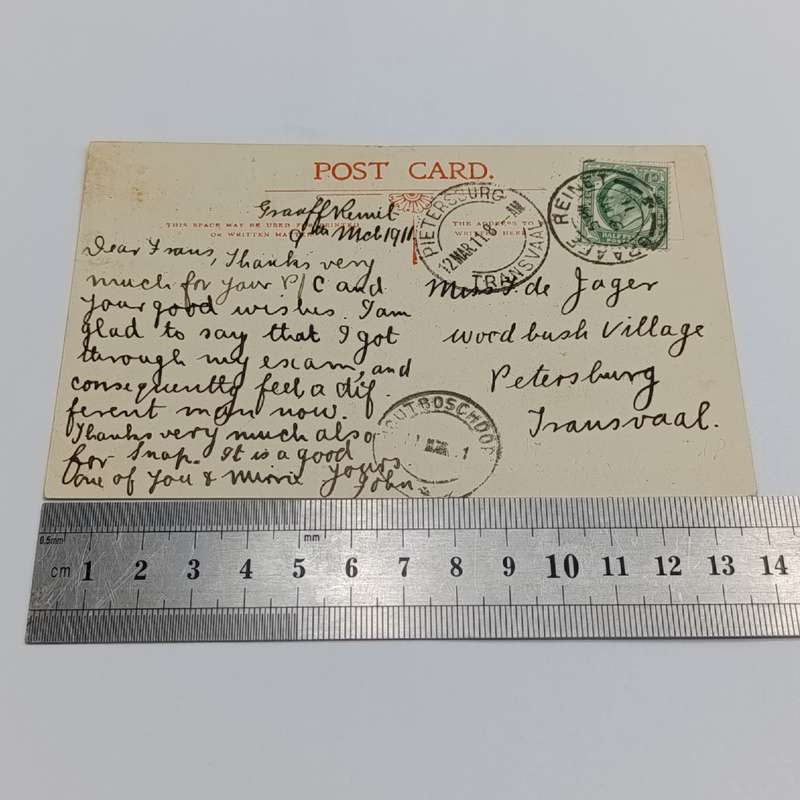 POST CARD.
THIS SPACE MAY BE USED FOR PRINTED
OR WRITTEN MATTER
THE ADDRESS TO
WRITTEN HERE
Graaff Reinet
9th Mch 1911
Dear Frans, Thanks very
much for your P/C and
your good wishes. I am
glad to say that I got
through my exam, and
consequently feel a dif-
ferent man now.
Thanks very much also
for Snap. It is a good
one of you &
Yours
John
PIETERSBURG
12 MAR 11
TRANSVAAL
GRAAFF REINET
Miss de Jager
Woodbush Village
Petersburg
Transvaal.
HOUTBOSCHDORP
0.5mm
mm
cm 1 2 3 4 5 6 7 8 9 10 11 12 13 14